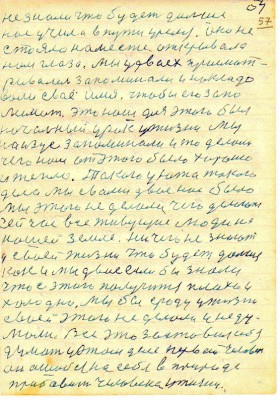 04
57
не знали что будет дальше
нас учила в пути природ. оно не
стояло на месте, открывала
нам глаза. Мы двоех просмат-
ривали запоминали и покладо
вали своё имя. чтобы его запо
мнит. Это наш для этого был
начальный урок у жизни мы
наизус запоминали и то делали
чего нам от этого было хорошо
и тепло. Такого у нат такого
дела мы с вами двое не было
мы этого не делали чего делают
сейчас все живущие люди на
нашей земле. Ничего не знают
у своей жизни что будет дальш
как и мы двое если бы знали
что с этого получитя плохо и
холодно. мы бы сроду у жизни
своей этого не делали и не ду-
мали. Все это заставила
думат и этом дне первой человек
он ошобся на себя в природе
прибавит человека у жизни.